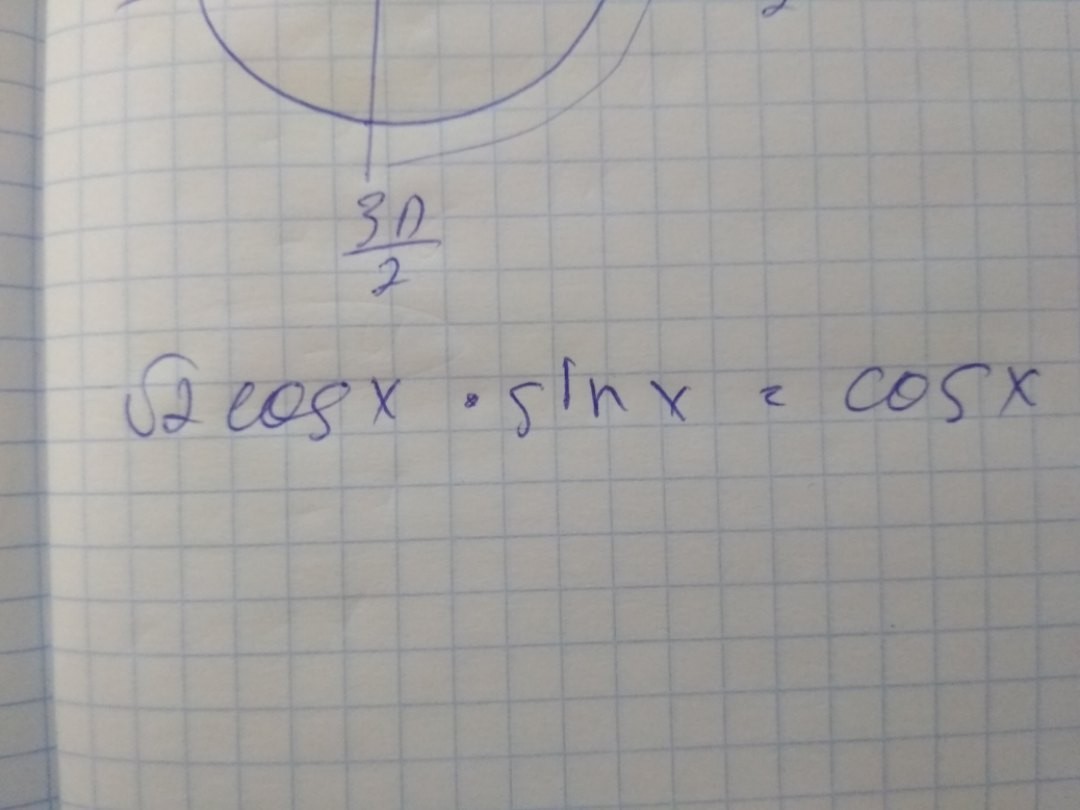 3π
2
√2 cos x · sin x = cos x